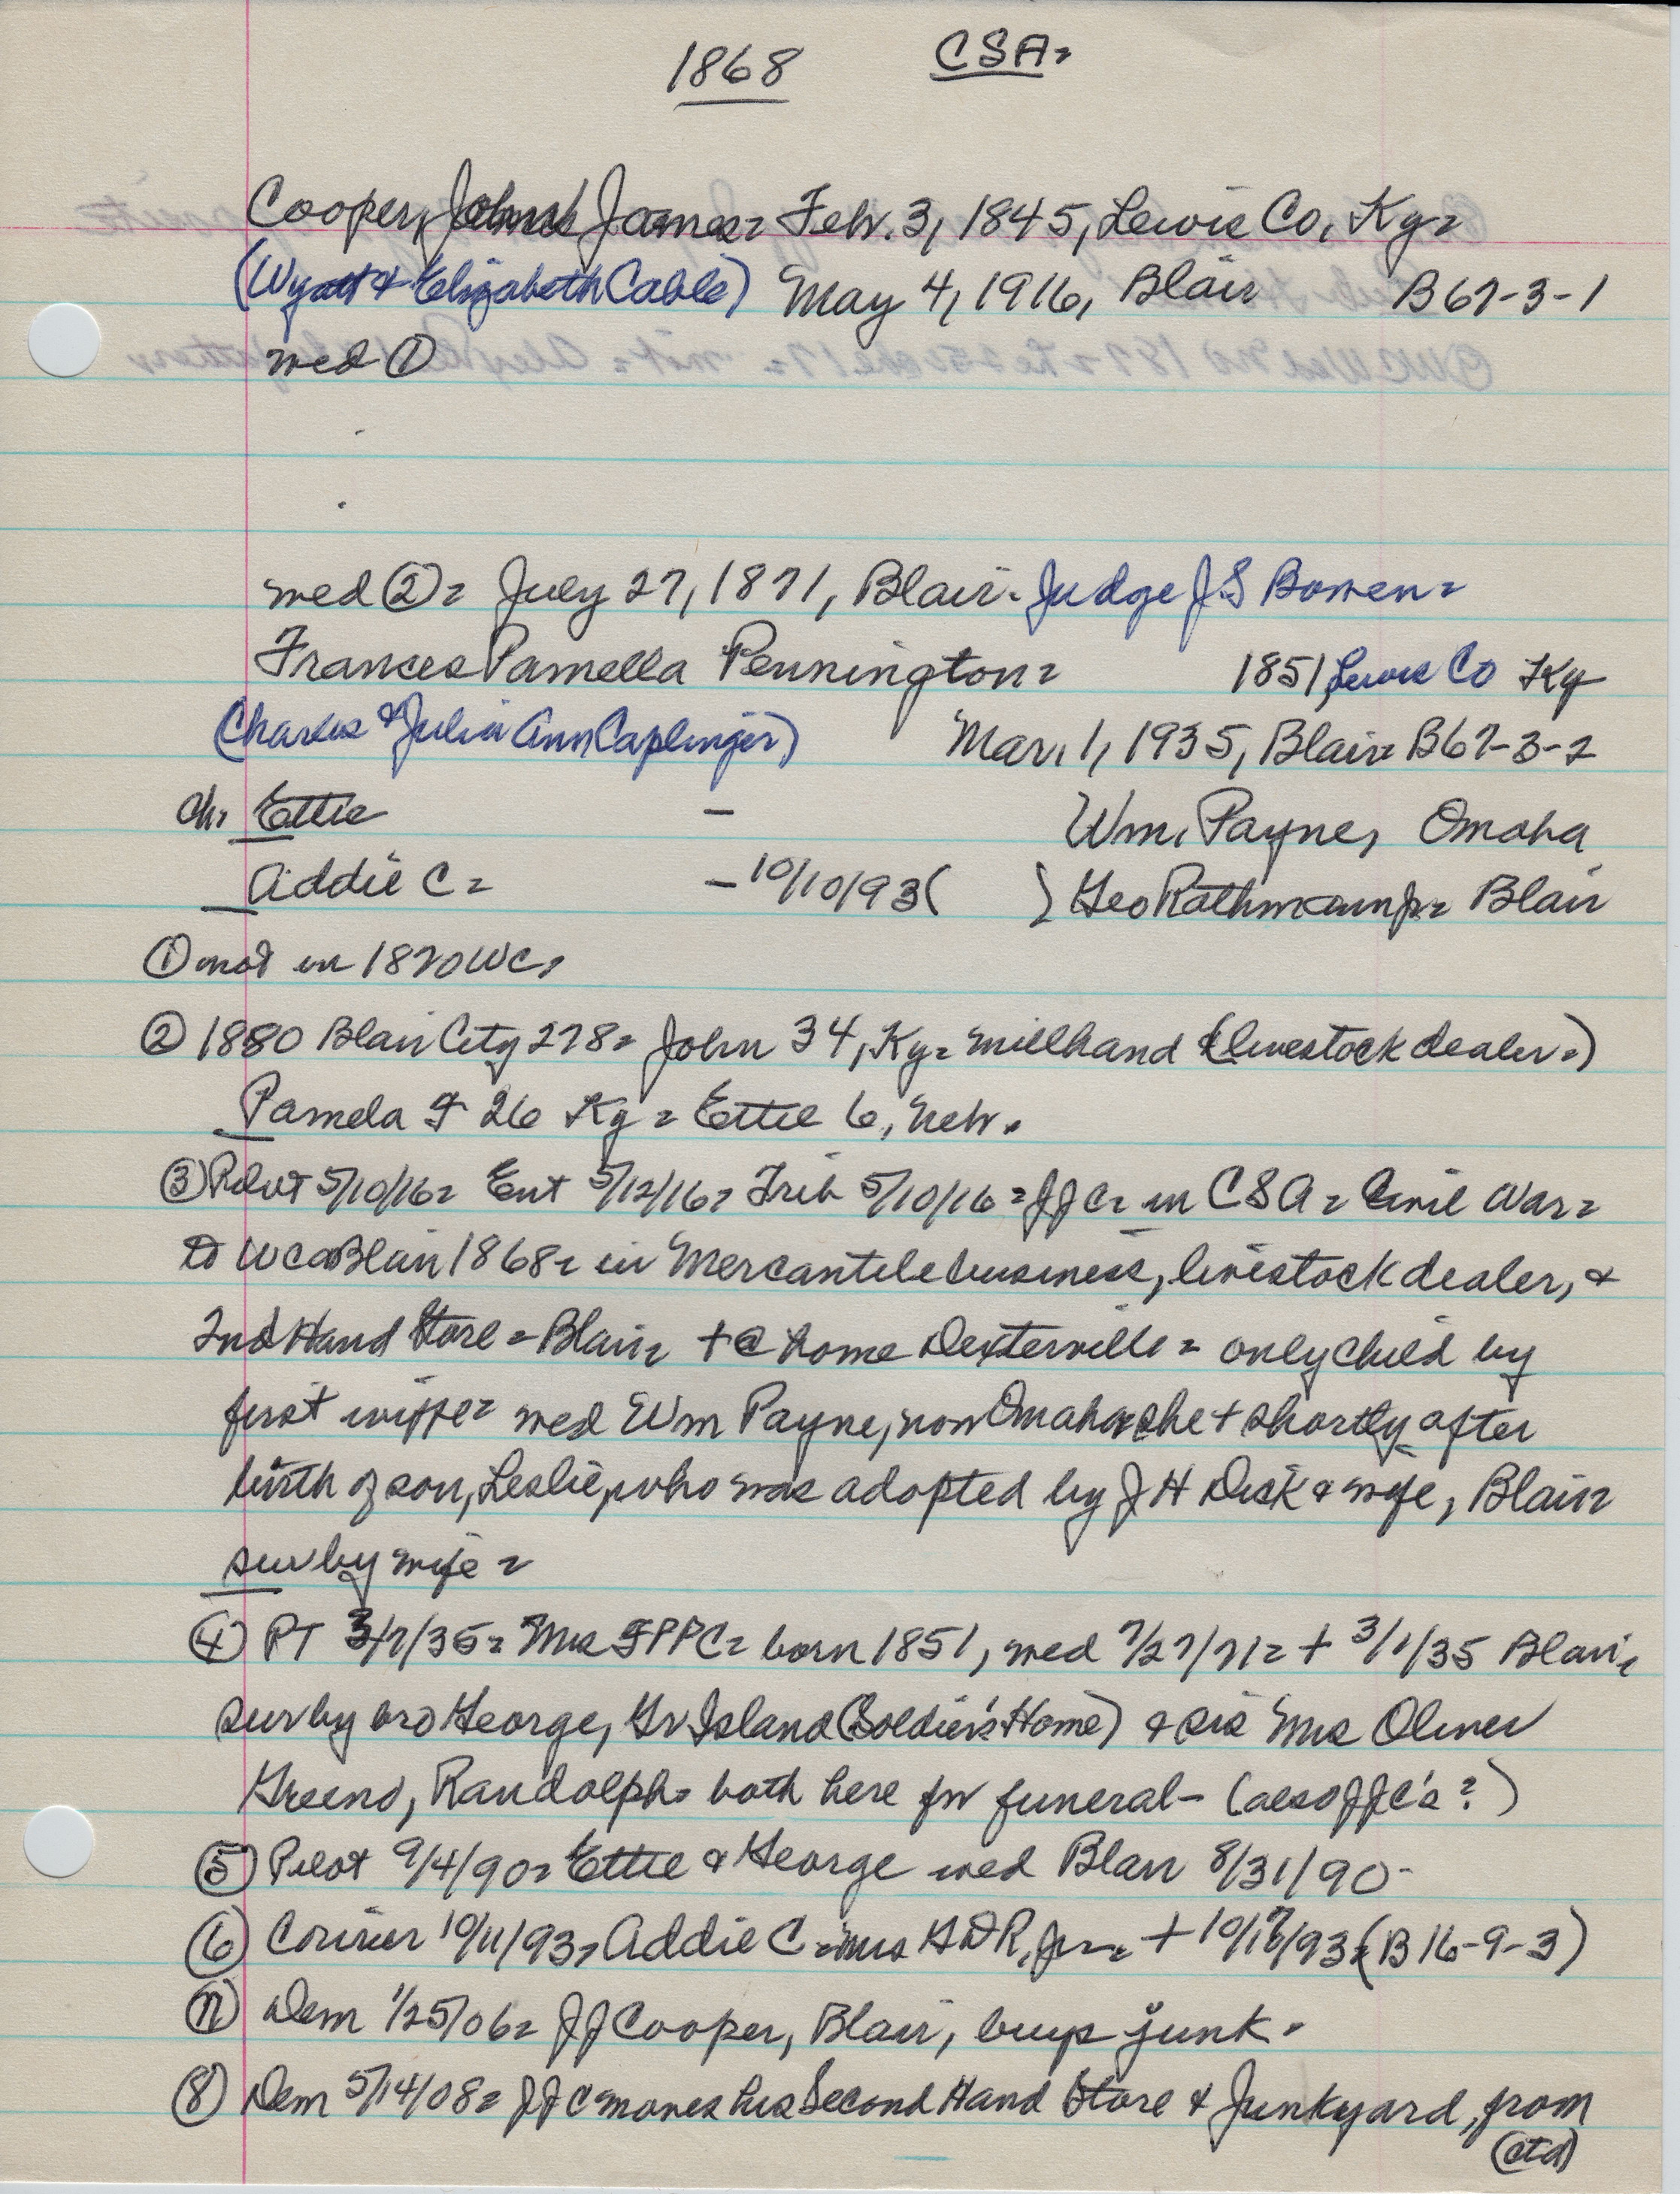 1868 CSA=
Cooper, John James= Febr. 3, 1845, Lewis Co, Ky=
(Wyatt & Elizabeth Cable) May 4, 1916, Blair B67-3-1
med ①
med ②= July 27, 1871, Blair. Judge J S Bowen=
Frances Pamella Pennington= 1851, Lewis Co Ky
(Charles & Julia Ann Caplinger) Mar. 1, 1935, Blair= B67-3-2
ch. Ettie - Wm. Payne, Omaha
Addie C= - 10/10/93( ) Geo Rathmann Jr= Blair
① not in 1870 WC,
② 1880 Blair City 278= John 34, Ky= millhand (livestock dealer=)
Pamela F 26 Ky= Ettie 6, Nebr.
③ Pilot 5/10/16= Ent 5/12/16= Trib 5/10/16= JJC= in CSA= Civil War=
to WC=Blair 1868= in Mercantile business, livestock dealer, &
2nd Hand Store=Blair= +@ home Dexterville= only child by
first wife= med Wm Payne, now Omaha=she + shortly after
birth of son, Leslie, who was adopted by J H Disk & wife, Blair=
sur by wife=
④ PT 3/7/35= Mrs FPPC= born 1851, med 7/27/71= + 3/1/35 Blair=
sur by bro George, Gr Island (Soldier's Home) & sis Mrs Oliver
Greeno, Randolph= both here for funeral- (aesoJJC's?)
⑤ Pilot 9/4/90= Ettie & George med Blair 8/31/90-
⑥ Courier 10/11/93= Addie C=Mrs GDR, Jr= + 10/ /93=(B 16-9-3)
⑦ Dem 1/25/06= JJ Cooper, Blair, buys junk.
⑧ Dem 5/14/08= JJC moves his Second Hand Store & Junkyard, from
(ctd)